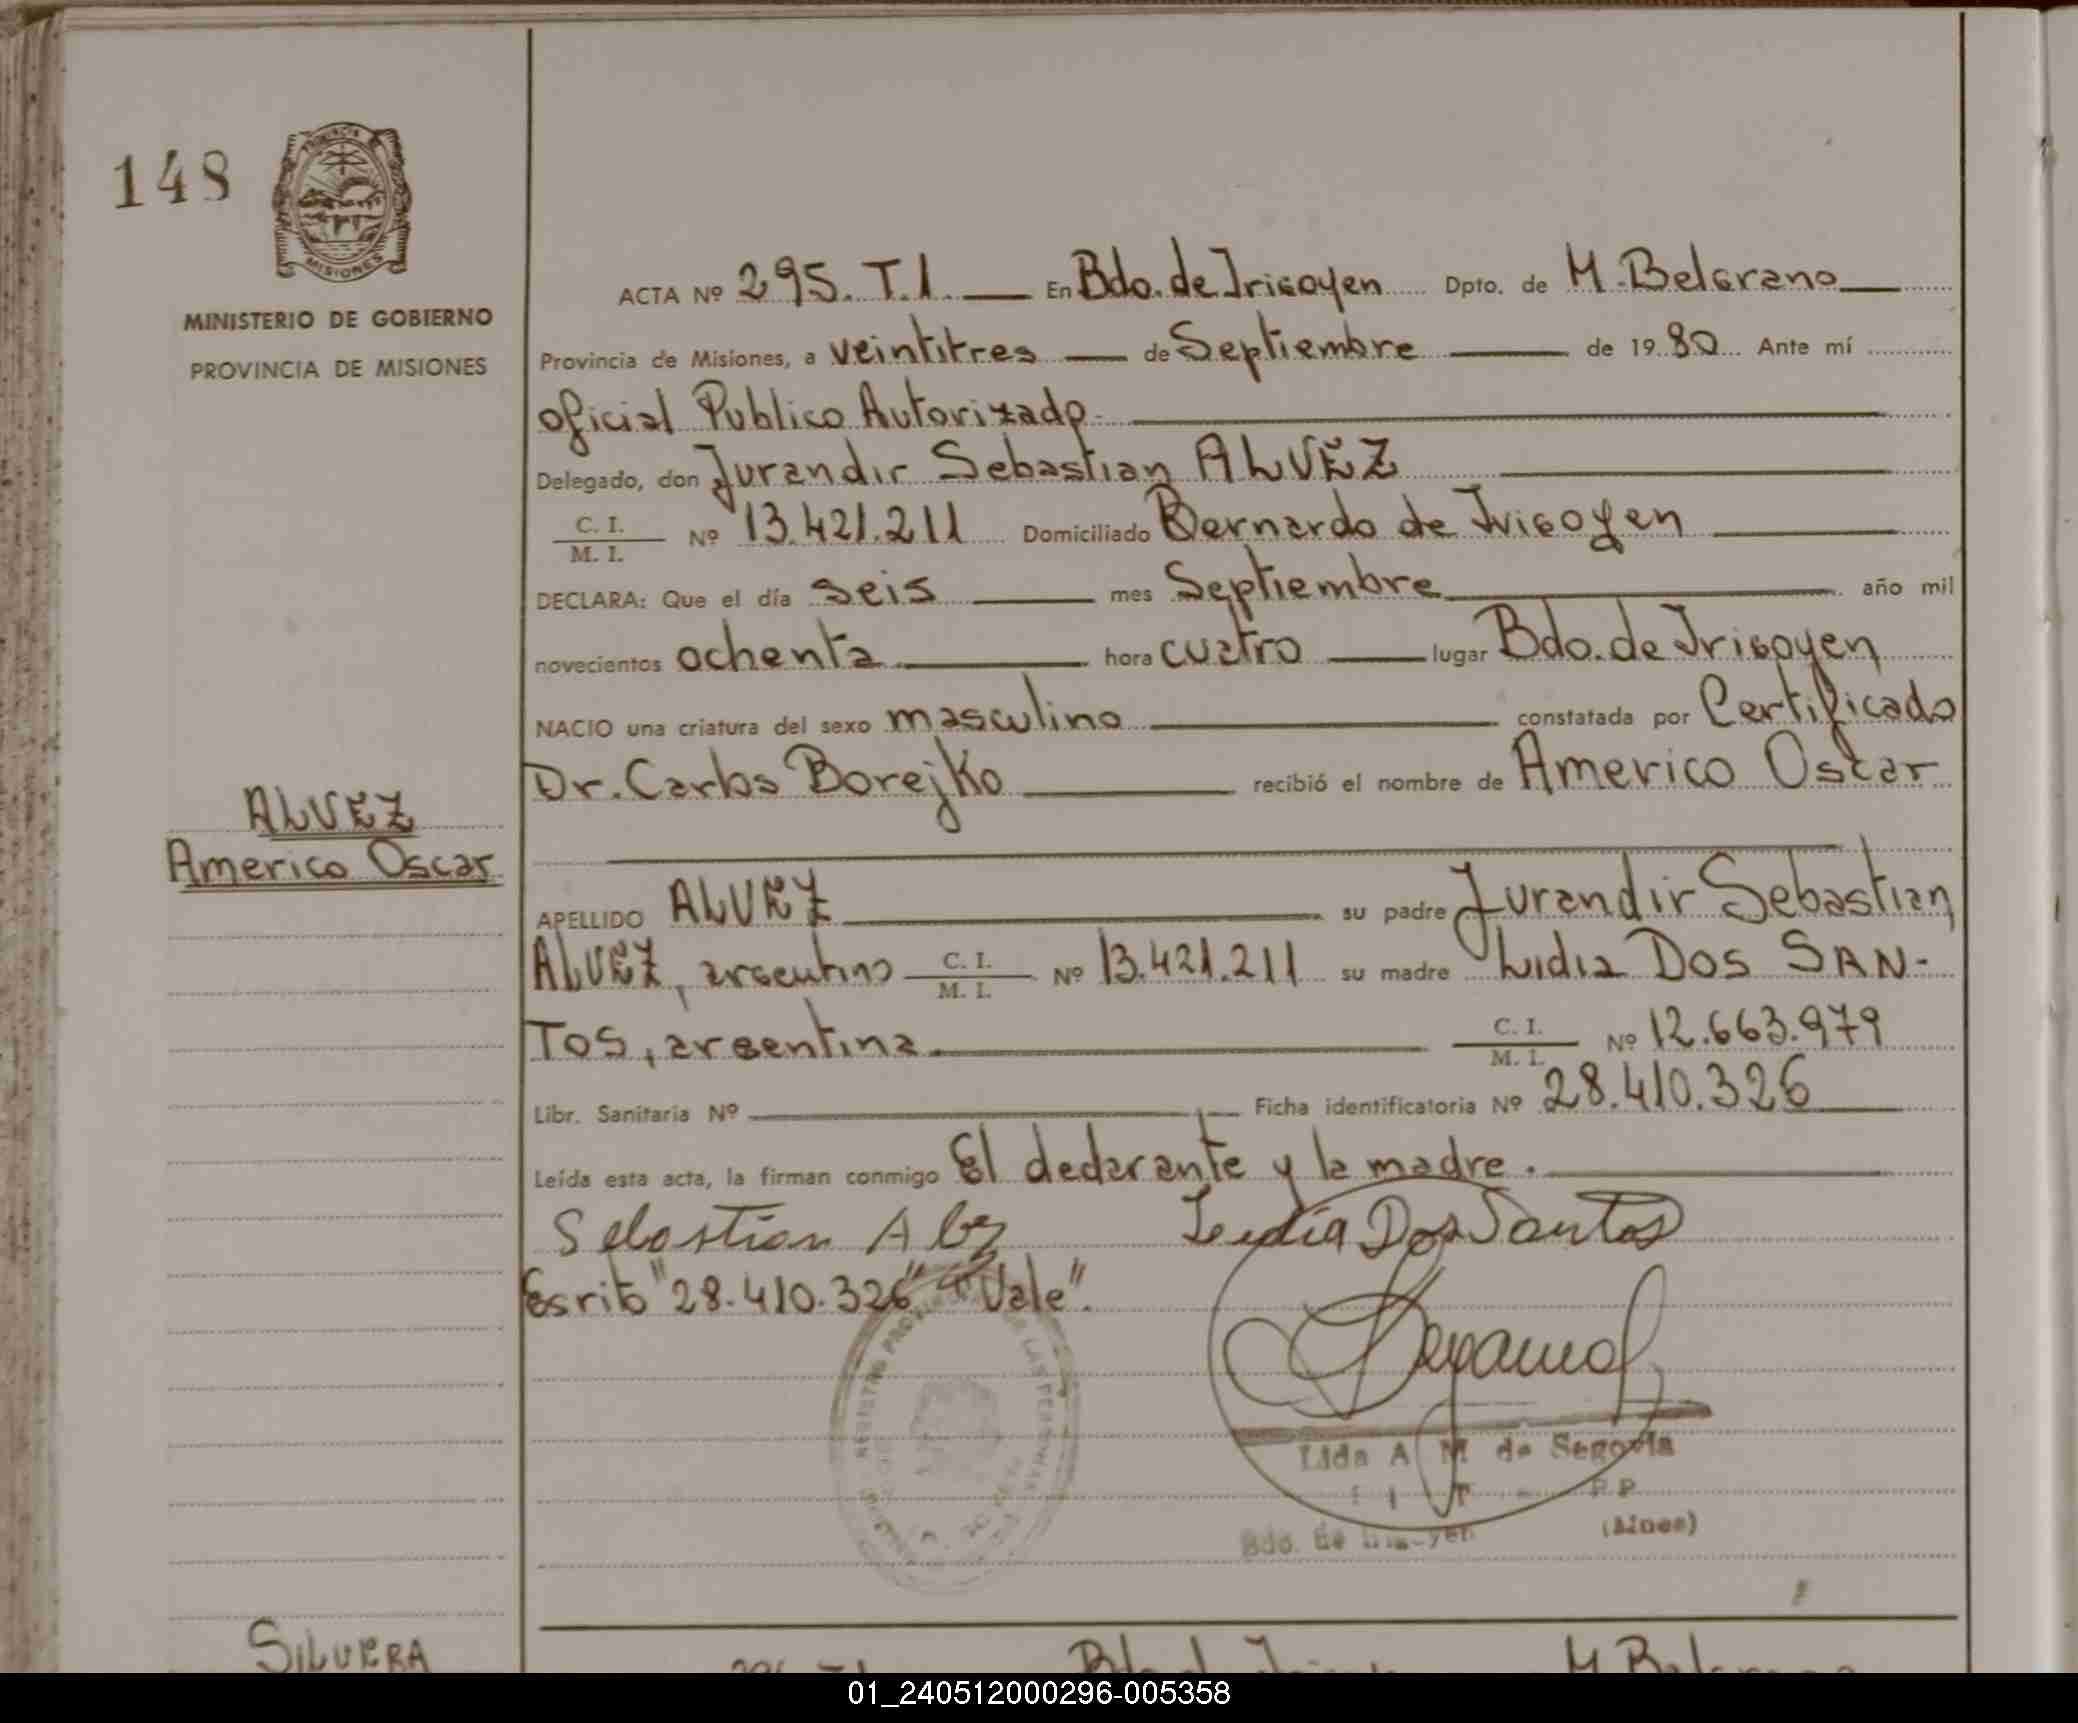 148
PROVINCIA
MISIONES
MINISTERIO DE GOBIERNO
PROVINCIA DE MISIONES
ACTA Nº 295. T.1. En Bdo. de Irigoyen Dpto. de M. Belgrano
Provincia de Misiones, a veintitres de Septiembre de 19 80 Ante mí
oficial Publico Autorizado
Delegado, don Jurandir Sebastian ALVEZ
C. I. / M. I. Nº 13.421.211 Domiciliado Bernardo de Irigoyen
DECLARA: Que el día seis mes Septiembre año mil
novecientos ochenta hora cuatro lugar Bdo. de Irigoyen
NACIO una criatura del sexo masculino constatada por Certificado
Dr. Carlos Borejko recibió el nombre de Americo Oscar
ALVEZ
Americo Oscar
APELLIDO ALVEZ su padre Jurandir Sebastian
ALVEZ, argentino C. I. / M. I. Nº 13.421.211 su madre Lidia DOS SAN-
TOS, argentina C. I. / M. I. Nº 12.663.979
Libr. Sanitaria Nº Ficha identificatoria Nº 28.410.326
Leída esta acta, la firman conmigo El declarante y la madre.
Sebastian Alvez Leidia Dos Santos
Esrito "28.410.326" "Vale".
Lida A M de Segovia
Bdo. de Irigoyen (Mnes)
SILVERA
01_240512000296-005358